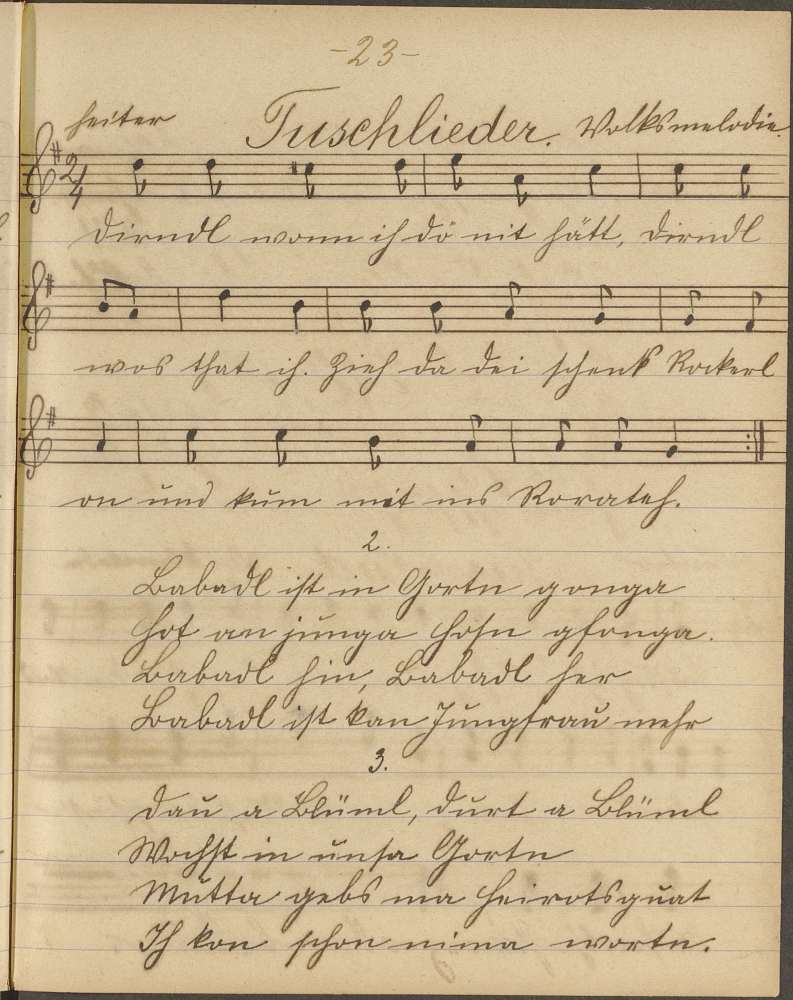 -23-
heiter Tuschlieder. Volksmelodie.
2/4
Dirndl wonn ih di nit hätt, Dirndl
wos that ih. Zieh da dei schenk Rockerl
on und kum mit ins Rorateh.
2.
Babadl ist in Gortn gonga
Hot an junga Hosn gfonga.
Babadl hin, Babadl her
Babadl ist kan Jungfrau mehr
3.
Dau a Blüml, durt a Blüml
Wochst in unsa Gortn
Mutta gebs ma Heirotsguat
Ih kon schon nima wortn.